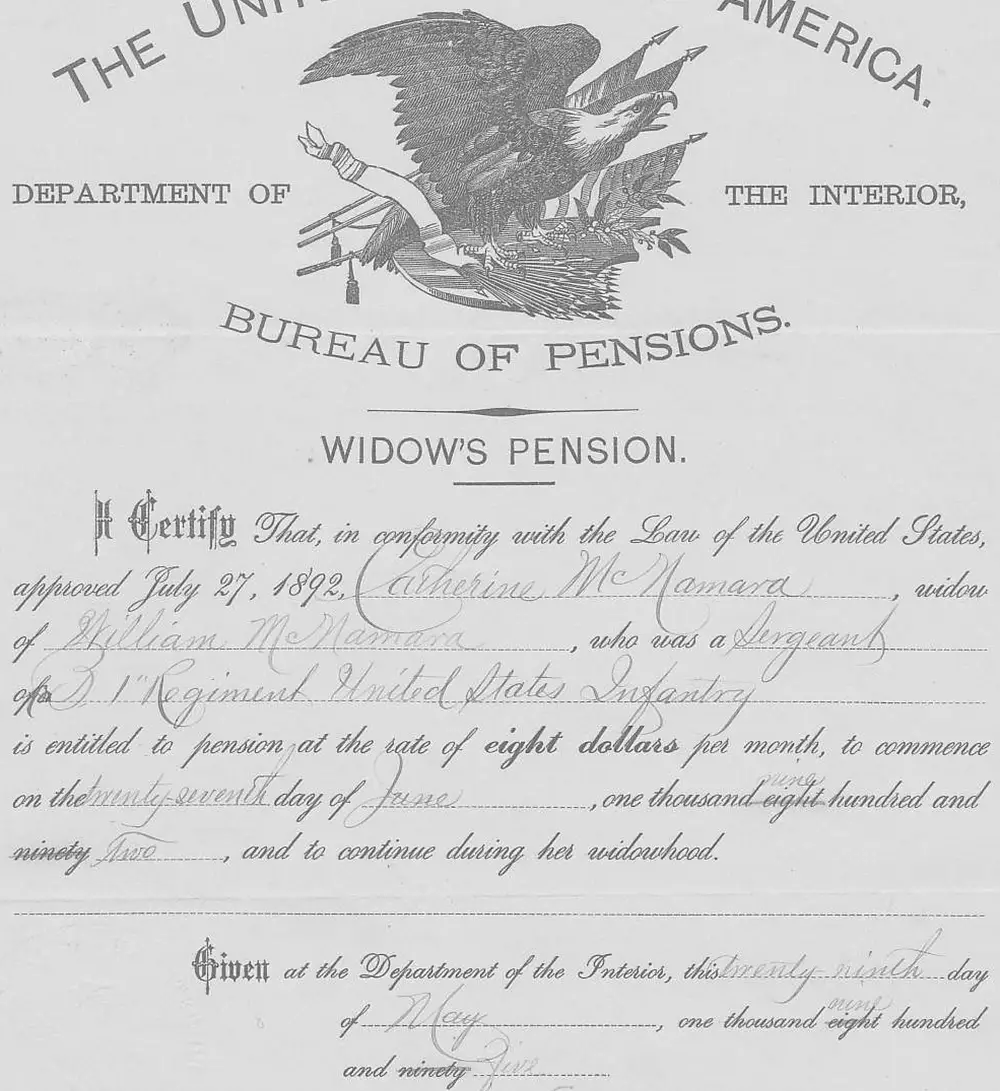 THE UNITED AMERICA.
DEPARTMENT OF THE INTERIOR,
BUREAU OF PENSIONS.
WIDOW'S PENSION.
I Certify That, in conformity with the Law of the United States,
approved July 27, 1892, Catherine McNamara, widow
of William McNamara, who was a Sergeant
B 1" Regiment United States Infantry
is entitled to pension at the rate of eight dollars per month, to commence
nine
on the twenty-seventh day of June, one thousand eight hundred and
ninety Two, and to continue during her widowhood.
Given at the Department of the Interior, this twenty-ninth day
nine
of May, one thousand eight hundred
and ninety Five